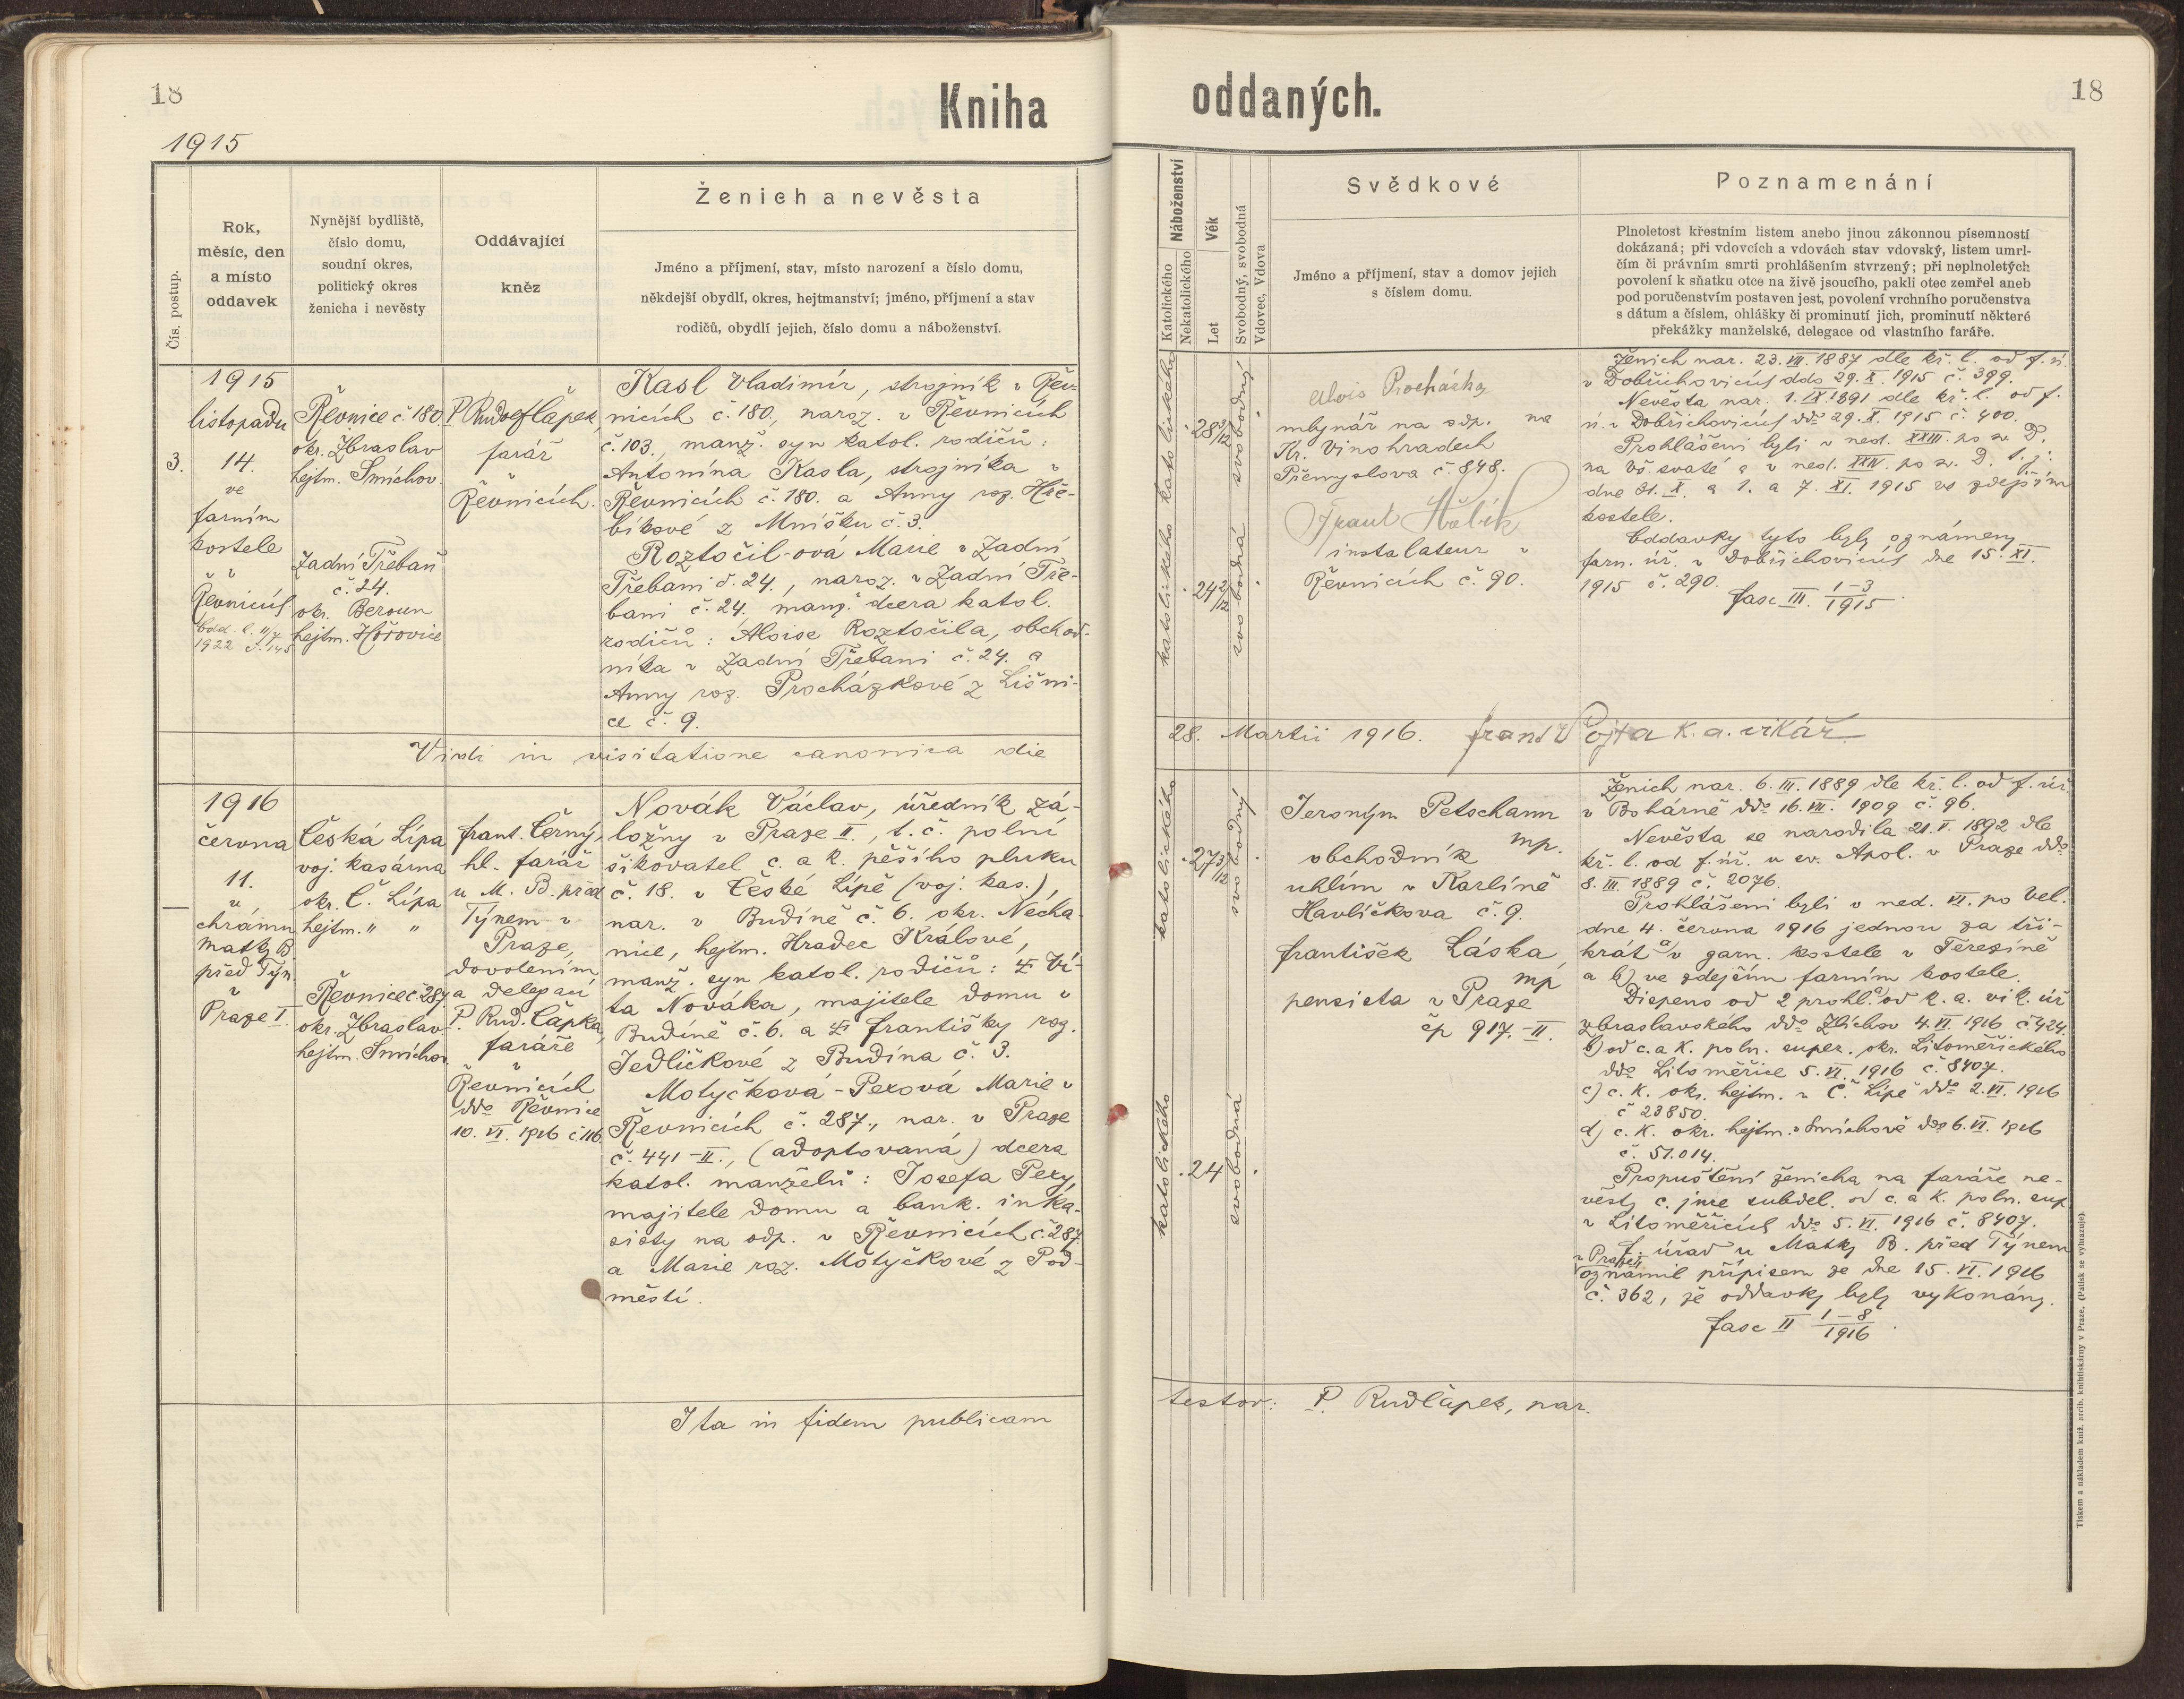 18
Kniha
1915
Čís. postup.
Rok,
měsíc, den
a místo
oddavek
Nynější bydliště,
číslo domu,
soudní okres,
politický okres
ženicha i nevěsty
Oddávající
kněz
Ženich a nevěsta
Jméno a příjmení, stav, místo narození a číslo domu,
někdejší obydlí, okres, hejtmanství; jméno, příjmení a stav
rodičů, obydlí jejich, číslo domu a náboženství.
3.
1915
listopadu
14.
ve
farním
kostele
v
Řevnicích
1922
Řevnice č 180.
okr. Zbraslav
hejtm. Smíchov.
Zadní Třebaň
č. 24.
okr. Beroun
hejtm. Hořovice
P. Rudolf Čapek,
farář
v
Řevnicích.
Kasl Vladimír, strojník v Řev-
nicích č. 180., naroz. v Řevnicích
č. 103., manž. syn katol. rodičů:
Antonína Kasla, strojníka v
Řevnicích č. 180. a Anny roz. Hře-
bíkové z Mníšku č. 3.
Roztočil-ová Marie v Zadní
Třebani č. 24., naroz. v Zadní Tře-
bani č. 24. manž. dcera katol.
rodičů: Aloise Roztočila, obchod-
níka v Zadní Třebani č. 24. a
Anny roz. Procházkové z Lišni-
ce č. 9.
Vidi in visitatione canonica die
1916
června
11.
u
chrámu
Matky B.
před Týn.
v
Praze I.
Česká Lípa
voj. kasárna
okr. Č. Lípa
hejtm. " "
Řevnice č. 287.
okr. Zbraslav
hejtm. Smíchov.
Frant. Černý,
hl. farář
u M. B. před
Týnem v
Praze,
dovolením
a delegací
P. Rud. Čapka,
faráře
v
Řevnicích
ddo Řevnice
10. VI. 1916 č. 116.
Novák Václav, úředník zá-
ložny v Praze II., t. č. polní
šikovatel c. a k. pěšího pluku
č. 18. v České Lípě (voj. kas.),
nar. v Budíně č. 6. okr. Necha-
nice, hejtm. Hradec Králové,
manž. syn katol. rodičů: † Ví-
ta Nováka, majitele domu v
Budíně č. 6. a † Františky roz.
Jedličkové z Budína č. 3.
Motyčková-Pexová Marie v
Řevnicích č. 287., nar. v Praze
č. 441-II., (adoptovaná) dcera
katol. manželů: Josefa Pexy,
majitele domu a bank. inka-
sisty na odp. v Řevnicích č. 287.
a Marie roz. Motyčkové z Pod-
městí.
Ita in fidem publicam
oddaných.
18
Náboženství
Katolického
Nekatolického
Věk
Let
Svobodný, svobodná
Vdovec, Vdova
Svědkové
Jméno a příjmení, stav a domov jejich
s číslem domu.
Poznamenání
Plnoletost křestním listem anebo jinou zákonnou písemností
dokázaná; při vdovcích a vdovách stav vdovský, listem umrl-
čím či právním smrti prohlášením stvrzený; při neplnoletých
povolení k sňatku otce na živě jsoucího, pakli otec zemřel aneb
pod poručenstvím postaven jest, povolení vrchního poručenstva
s dátum a číslem, ohlášky či prominutí jich, prominutí některé
překážky manželské, delegace od vlastního faráře.
katolického
28 3/12
svobodný
katolického
24 2/12
svobodná
Alois Procházka
mlynář na odp. na
Kr. Vinohradech
Přemyslova č. 848.
Frant
instalateur v
Řevnicích č. 90.
Ženich nar. 23. VII. 1887 dle kř. l. od f. ú.
v Dobřichovicích ddo 29. X. 1915 č. 399.
Nevěsta nar. 1. IX. 1891 dle kř. l. od f.
ú. v Dobřichovicích ddo 29. X. 1915 č. 400.
Prohlášeni byli v ned. XXIII. po sv. D.
na Vš. svaté a v ned. XXIV. po sv. D. t. j.
dne 31. X. a 1. a 7. XI. 1915 ve zdejším
kostele.
Oddavky tyto byly oznámeny
farn. úř. v Dobřichovicích dne 15. XI.
1915 č. 290.
fasc III. 1-3/1915
28. Martii 1916. Frant Vojta k. a. vikář
katolického
27 3/12
svobodný
katolického
24
svobodná
Jeroným Petschann
mp.
obchodník
uhlím v Karlíně
Havlíčkova č. 9.
František Láska
mp
pensista v Praze
čp 917-II.
Ženich nar. 6. III. 1889 dle kř. l. od f. úř.
v Boharně ddo 16. VII. 1909 č. 96.
Nevěsta se narodila 21. V. 1892 dle
kř. l. od f. úř. u sv. Apol. v Praze ddo
8. III. 1889 č. 2076.
Prohlášeni byli v ned. VI. po Vel.
dne 4. června 1916 jednou za tři-
krát a) v garn. kostele v Terezíně
a b) ve zdejším farním kostele.
Dispens od 2 prohl. a) od k. a. vik. úř
zbraslavského ddo Zlíchov 4. VI. 1916 č 424.
b) od c. a k. poln. super. okr. Litoměřického
ddo Litoměřice 5. VI. 1916 č. 8407.
c) c. k. okr. hejtm. v Č. Lípě ddo 2. VI. 1916
č 23850.
d) c. k. okr. hejtm. v Smíchově ddo 6. VI. 1916
č. 51.014.
Propuštění ženicha na faráře ne-
věsty c. jure subdel. od c. a k. poln. sup
v Litoměřicích ddo 5. VI. 1916 č. 8407.
F. úřad u Matky B. před Týnem
v Praze
oznámil přípisem ze dne 15. VI. 1916
č. 362, že oddavky byly vykonány.
fasc II 1-8/1916.
testor: P. Rud Čapek, par.
Tiskem a nákladem kníž. arcib. knihtiskárny v Praze. (Patisk se vyhrazuje)